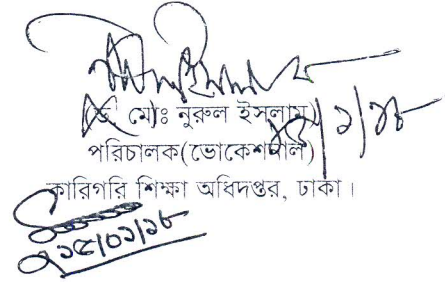 (ড. মোঃ নুরুল ইসলাম)
পরিচালক(ভোকেশনাল)
কারিগরি শিক্ষা অধিদপ্তর, ঢাকা।
১৫/০১/১৮